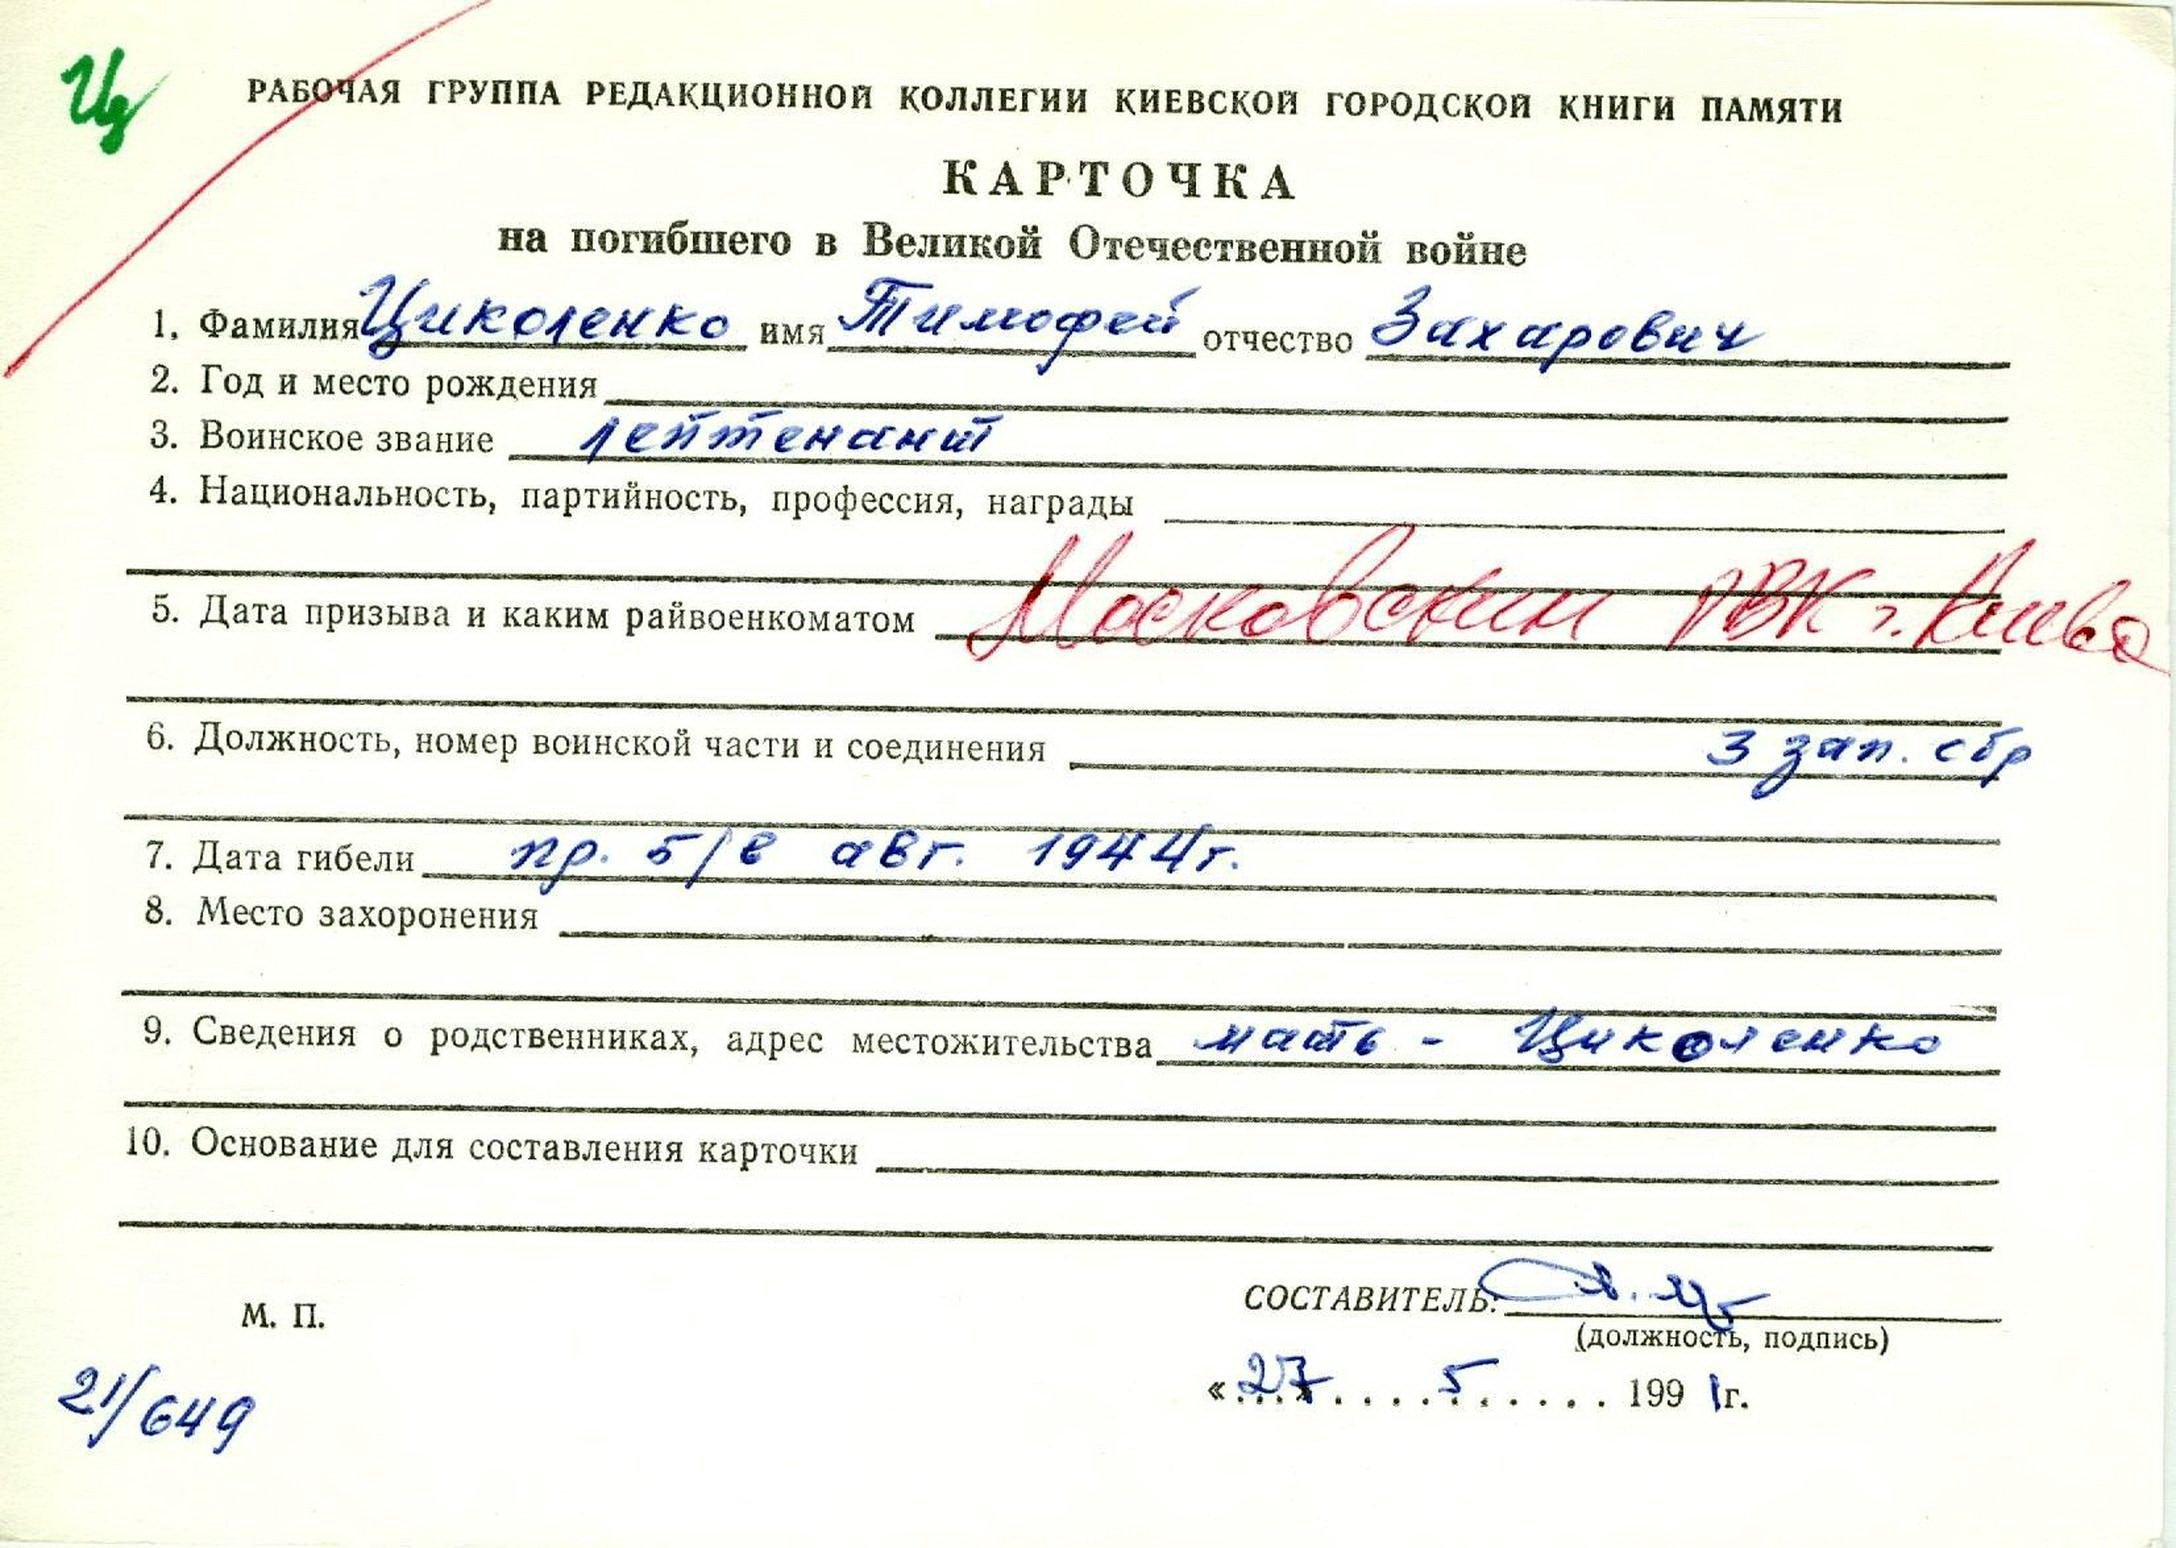 Ц
РАБОЧАЯ ГРУППА РЕДАКЦИОННОЙ КОЛЛЕГИИ КИЕВСКОЙ ГОРОДСКОЙ КНИГИ ПАМЯТИ
КАРТОЧКА
на погибшего в Великой Отечественной войне
1. Фамилия Циколенко имя Тимофей отчество Захарович
2. Год и место рождения
3. Воинское звание лейтенант
4. Национальность, партийность, профессия, награды
5. Дата призыва и каким райвоенкоматом Московским РВК г. Киева
6. Должность, номер воинской части и соединения 3 зап. сбр
7. Дата гибели пр. б/в авг. 1944г.
8. Место захоронения
9. Сведения о родственниках, адрес местожительства мать - Циколенко
10. Основание для составления карточки
М. П.
СОСТАВИТЕЛЬ:
(должность, подпись)
«27» 5 1991г.
21/649